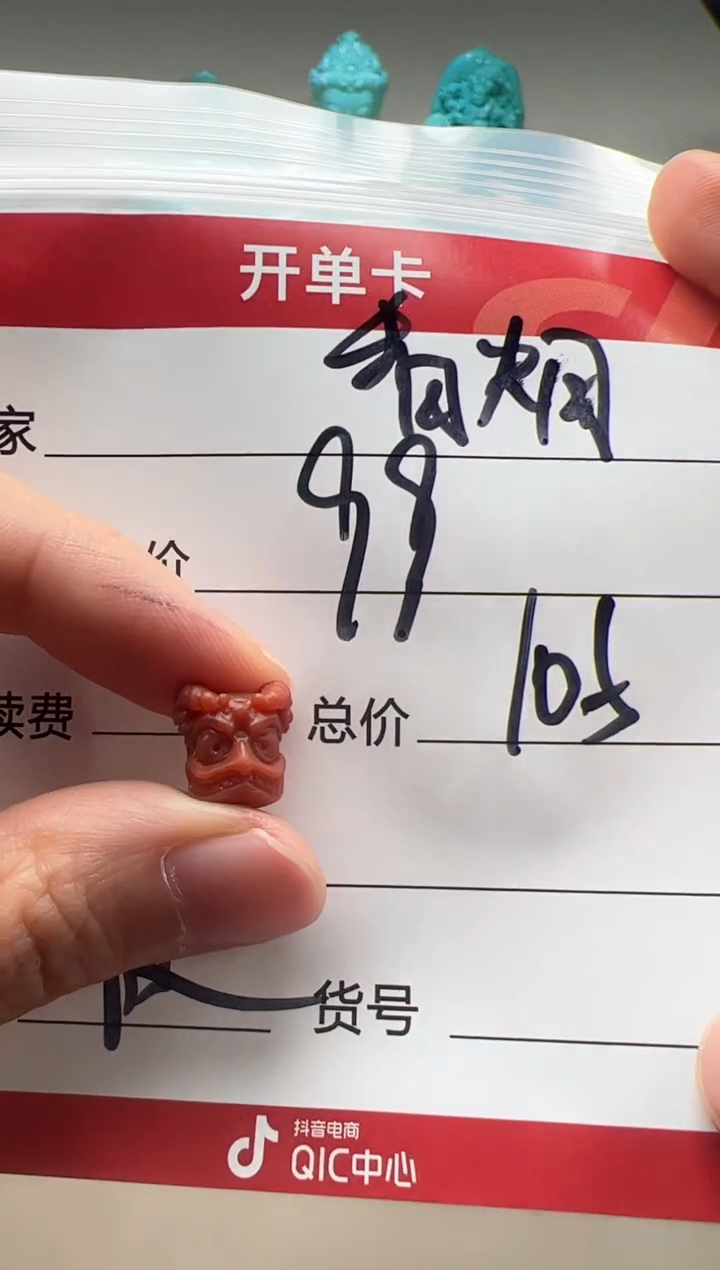 开单卡
家 青烟
价 99
续费 总价 105
货号
抖音电商
QIC中心